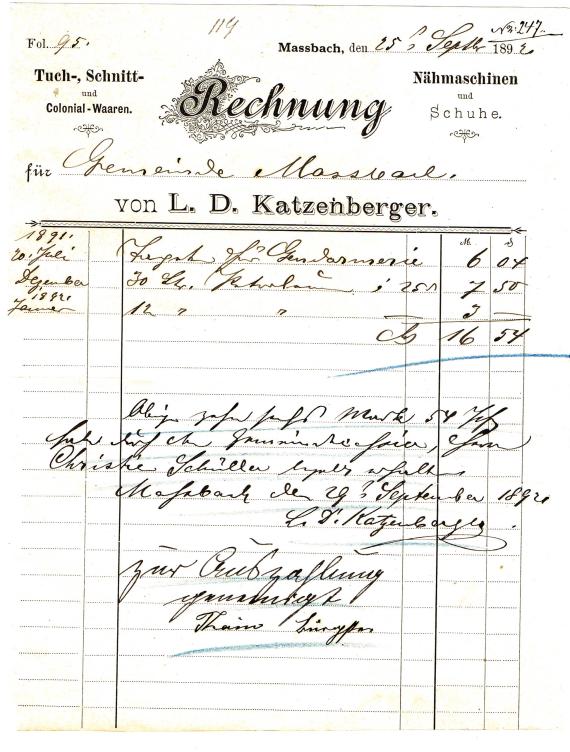 114
No 247.
Fol. 95.
Massbach, den 25 Septbr 1892
Tuch-, Schnitt-
und
Colonial-Waaren.
Rechnung
Nähmaschinen
und
Schuhe.
für Gemeinde Massbach.
von L. D. Katzenberger.
M. ₰
1891.
20. Juli für Gendarmerie 6 04
Dezember 30 Ltr. Petroleum à 25 7 50
1892
Januar 12 " " 3 –
M 16 54
Obige zehn sechs Mark 54 Pfg
habe durch den Gemeindecassier, Herrn
Christie Schüller erhalten
Massbach den 29 September 1892
L. D. Katzenberger.
zur Auszahlung
genemigt
Bürgstr